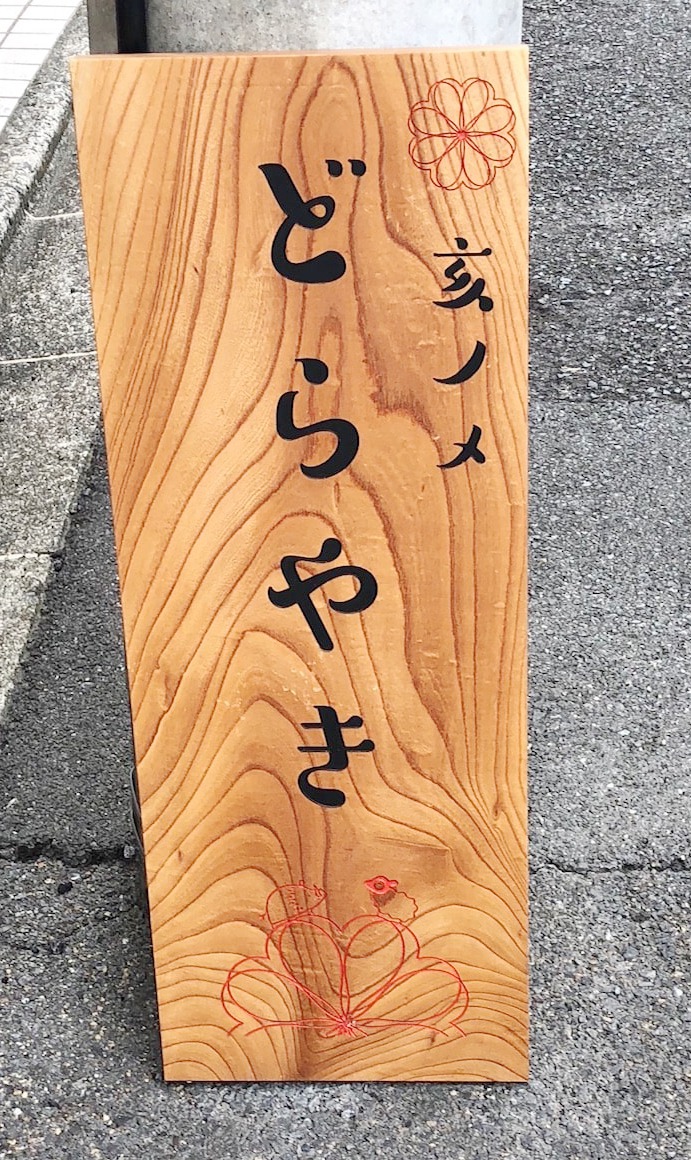 亥ノメ
どらやき